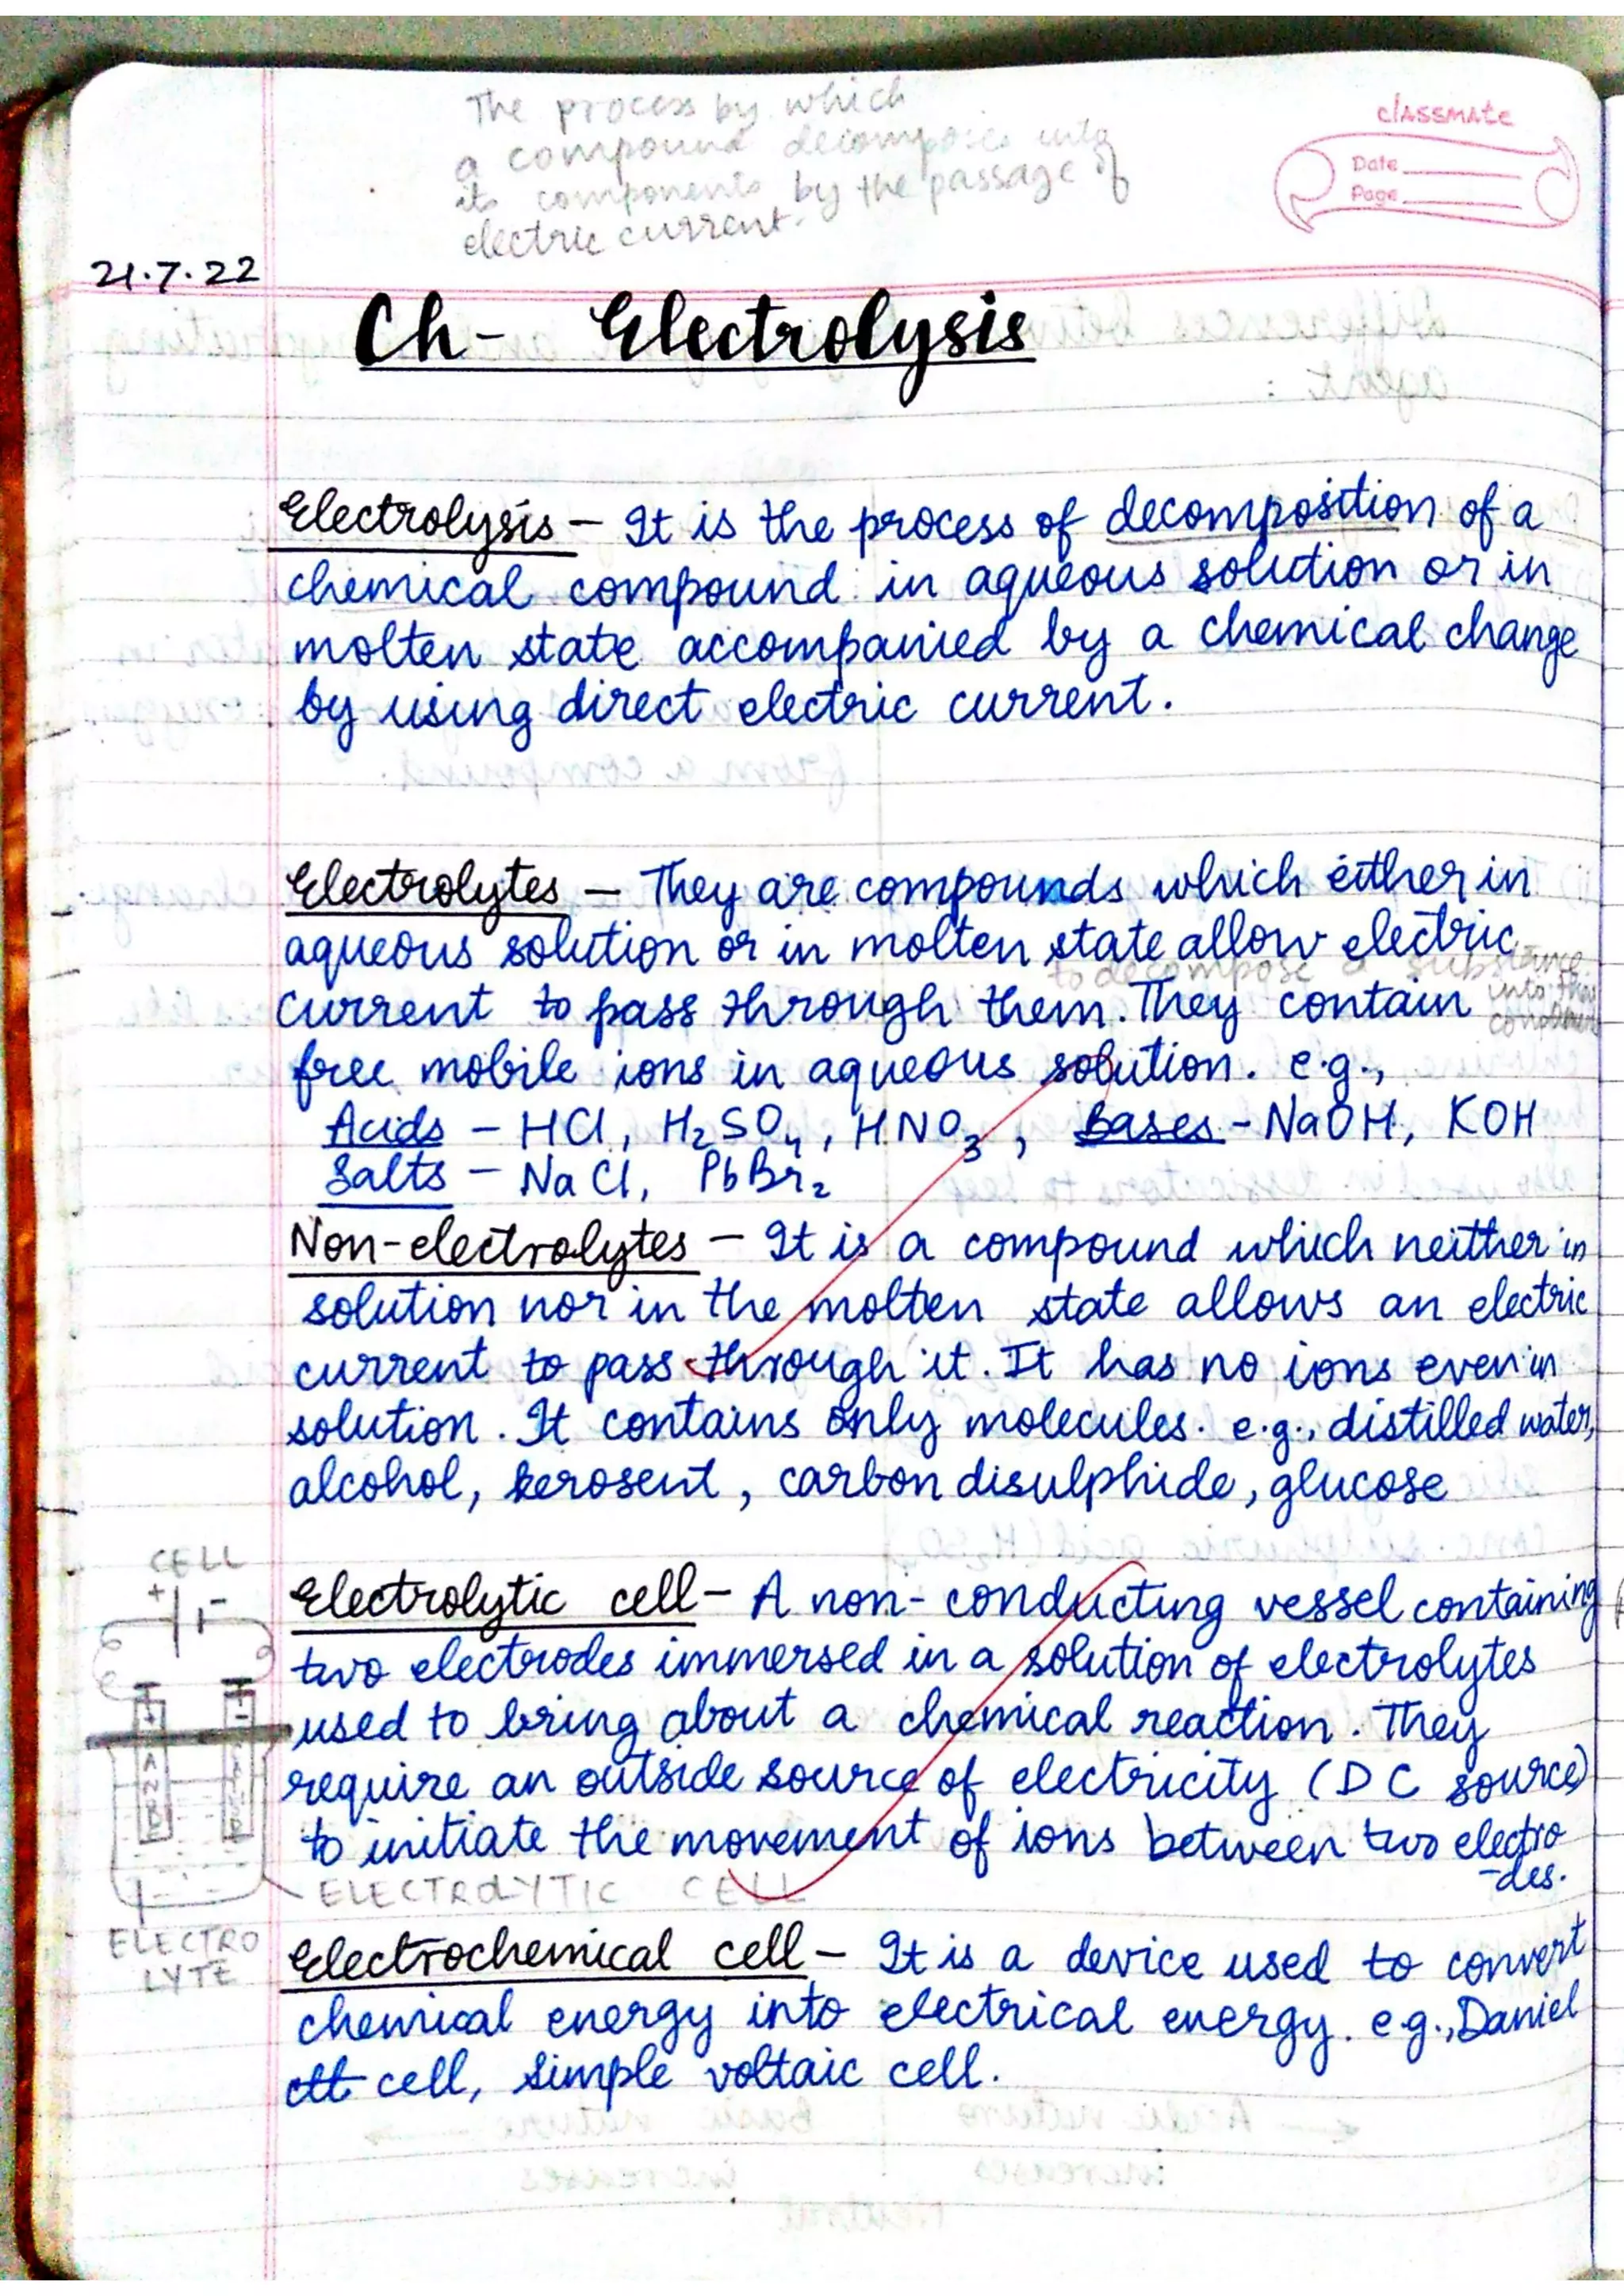 The process by which
a compound decomposes into
its components by the passage of
electric current.
classmate
Date
Page
21.7.22
Ch- Electrolysis
Electrolysis – It is the process of decomposition of a
chemical compound in aqueous solution or in
molten state accompanied by a chemical change
by using direct electric current.
Electrolytes – They are compounds which either in
aqueous solution or in molten state allow electric
to decompose a substance
into
current to pass through them. They contain
free mobile ions in aqueous solution. e.g.,
Acids – HCl, H₂SO₄, HNO₃, Bases - NaOH, KOH
Salts – NaCl, PbBr₂
Non-electrolytes – It is a compound which neither in
solution nor in the molten state allows an electric
current to pass through it. It has no ions even in
solution. It contains only molecules. e.g., distilled water,
alcohol, kerosent, carbon disulphide, glucose
CELL
+ -
Electrolytic cell – A non-conducting vessel containing
two electrodes immersed in a solution of electrolytes
used to bring about a chemical reaction. They
require an outside source of electricity (DC source)
to initiate the movement of ions between two electro
-des.
+ -
ELECTROLYTIC CELL
ELECTRO
LYTE
Electrochemical cell – It is a device used to convert
chemical energy into electrical energy. e.g., Daniel
cell, simple voltaic cell.